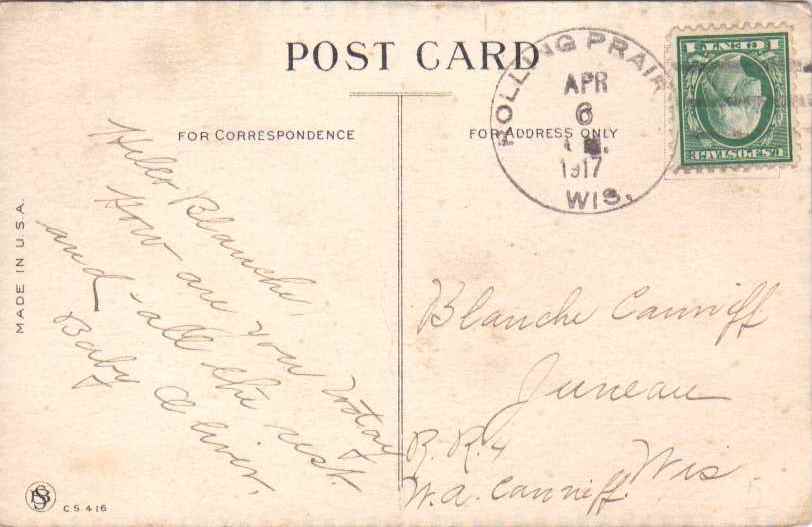 POST CARD
FOR CORRESPONDENCE
FOR ADDRESS ONLY
ROLLING PRAIRIE
APR
6
1917
WIS.
1 CENT 1
U.S. POSTAGE
MADE IN U.S.A.
Hello Blanche,
How are you today
and all the rest.
Baby Oliver.
Blanche Canniff
Juneau
R. R. 4 Wis
W.A. Canniff.
C.S. 416